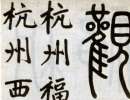 觀
杭州福
杭州西